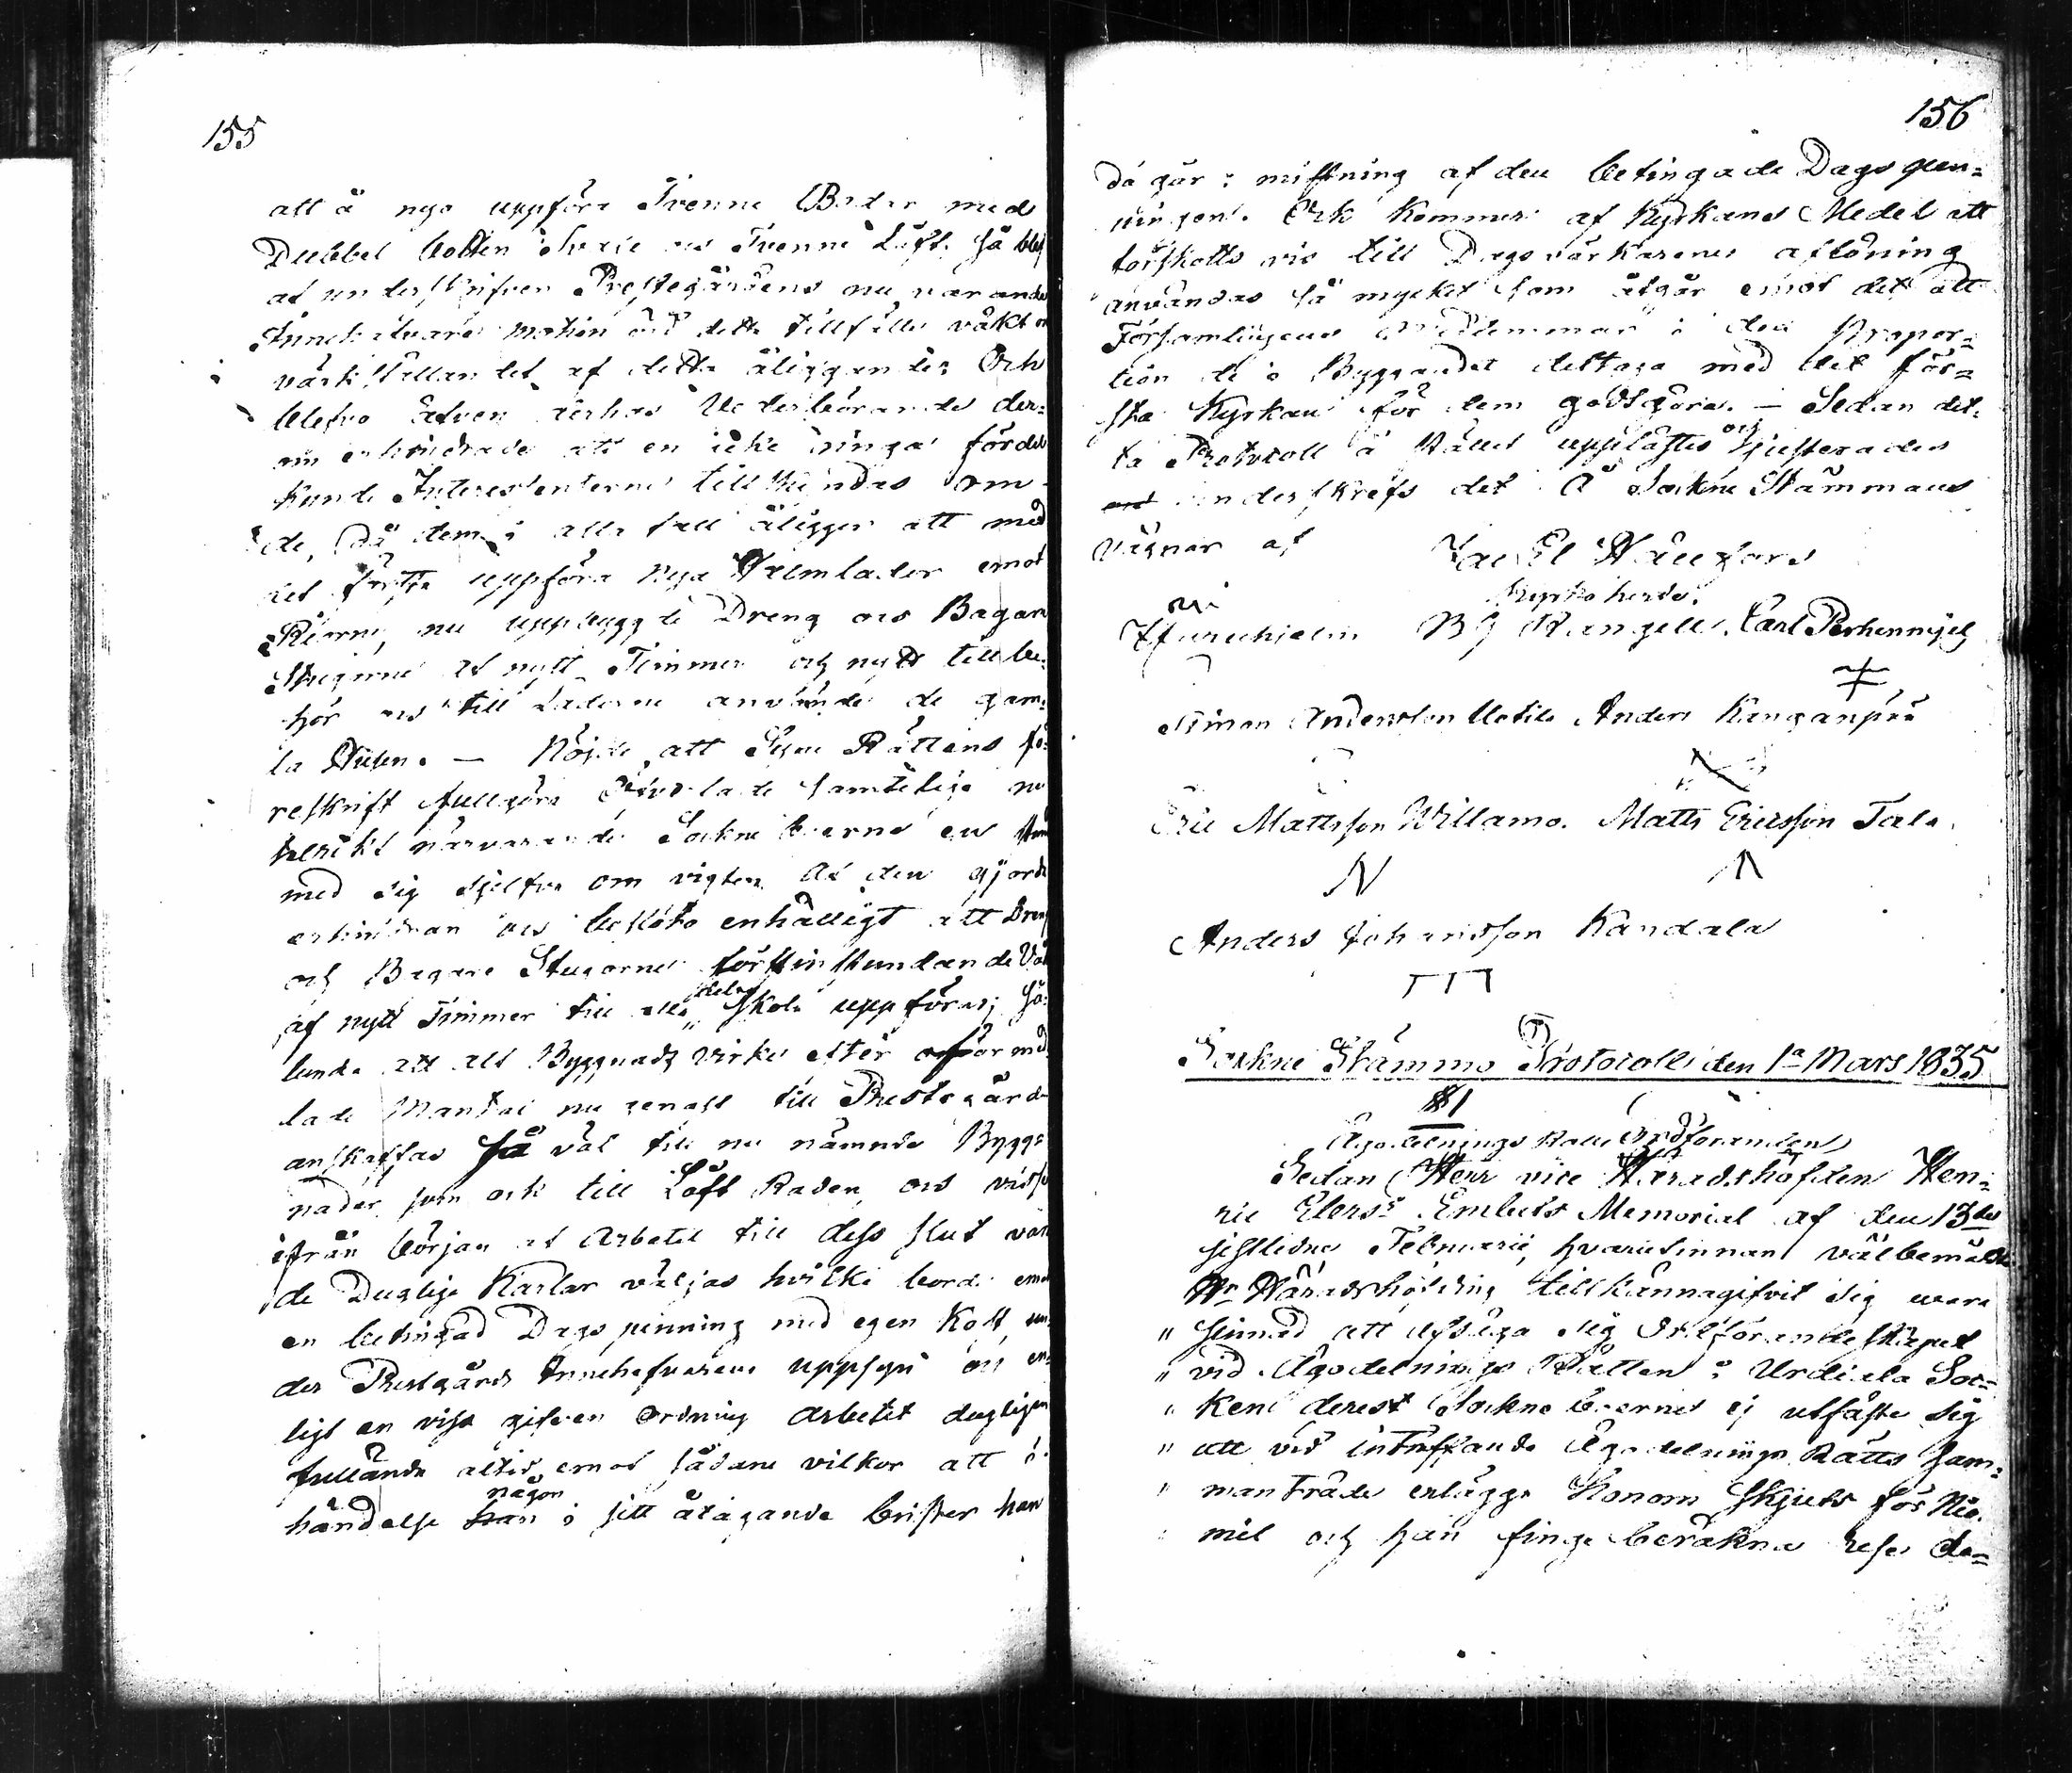 155
att å nyo uppföra Tvenne Bodar med
Dubbel botten Svale och Tvenne Luft. så blef
af underskrifven Prestegårdens nu varande
Innehafvare motion vid detta tillfälle väkt om
värkställandet af detta åliggande; Och
blefvo äfven derhos Vederbörande der-
om erhindrade att en icke ringa fördel
kunde Interessenterne tillskyndas om-
de, då dem i alla fall åligger att med
det första uppföra nya Halmlador emot
Riorne, nu uppbyggde Dreng och Bagare
Stugorne af nytt Timmer och nytt tillbe-
hör och till Laderne använde de gam-
la Husen. — Nöjde att Syne Rättens fö-
reskrift fullgöra samtelige nu
talrikt närvarande Sockneboerne
med sig sjelfva om vigten af den gjorde
erhindran och beslöto enhälligt att Dreng
och Bagare Stugorne förstinstundande Vår
af nytt Timmer till alla delar skola uppföras; så-
lunda att allt Byggnads virke efter oförmed-
lade Mantal nu genast till Prestegården
anskaffas så väl till nu nämnde Bygg-
nader som ock till Loft Raden, och
ifrån början af Arbetet till dess slut
de Duglige Karlar väljas hvilka borde emot
en betingad Dagspenning med egen Kost un-
der Prestgårds Innehafvarens uppsyn och en-
ligt en viss gifven ordning arbetet dageligen
fullända altid emot sådane vilkor att i
händelse någon i sitt åtagande brister han
156
då går i mistning af den betingade Dagspen-
ningen. Och kommer af Kyrkans Medel att
förskotts vis till Dagsvärkarenes aflöning
användas så mycket som åtgår emot det att
Församlingens Medlemmar i den propor-
tion de i Byggandet deltaga med det för-
sta Kyrkan för dem godtgöra. — Sedan det-
ta Protocoll å Stället upplästes och justerades
underskrefs det å Sockne Stämmans
vägnar af
Kyrkoherde.
Carl Perhenmyel
Simon Andersson Uotila Anders Kanganpää
Eric Mattsson Willamo. Matts Ericsson Tala.
Anders Johansson Kandala
Sockne Stämmo Protocoll den 1a Mars 1835
§ 1
Ägodelnings Rätts Ordföranden
Sedan Herr vice Häradshöfden Hen-
ric Elerss Embets Memorial af den 13des
sistlidne Februarii, hvarutinnan välbemälte
Hr Häradshöfding tillkännagifvit sig vara
" sinnad att afsäga sig Ordförandeskapet
" vid Ägodelnings Rätten i Urdiala Soc-
" ken derest Sockneboerne ej utfäste sig
" att vid inträffande Ägodelnings Rätts sam-
" manträde erlägga Honom skjuts för Nio
" mil och han finge beräkna rese da-